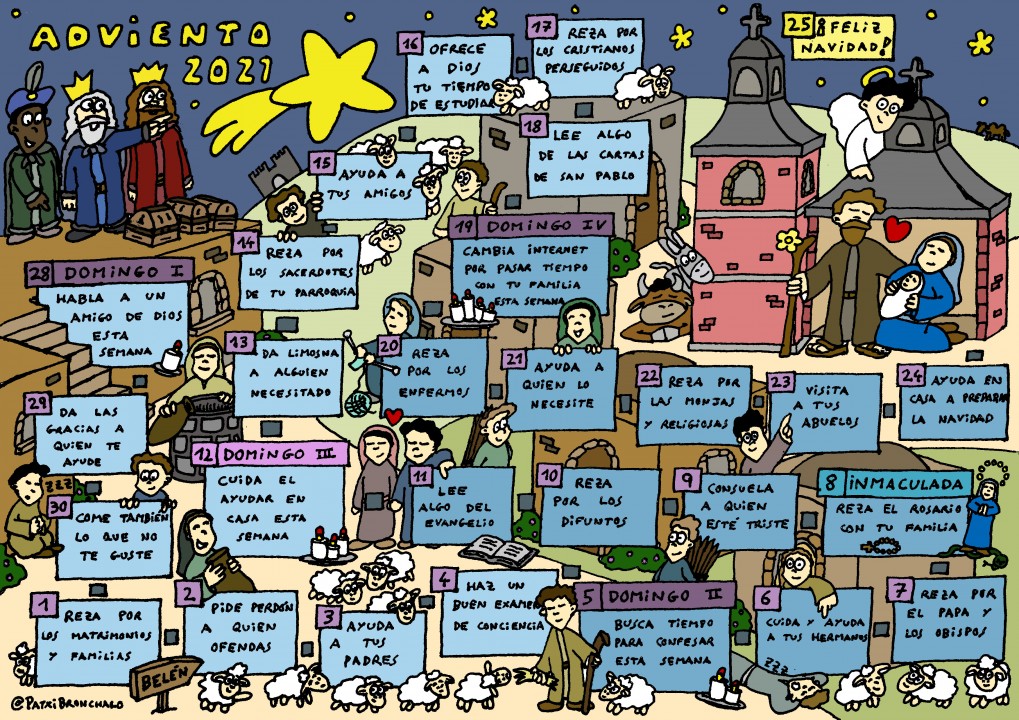 ADVIENTO
2021
28 DOMINGO I
HABLA A UN
AMIGO DE DIOS
ESTA
SEMANA
29
DA LAS
GRACIAS A
QUIEN TE
AYUDE
ZZZ
30
COME TAMBIÉN
LO QUE NO
TE GUSTE
1
REZA POR
LOS MATRIMONIOS
Y FAMILIAS
2
PIDE PERDÓN
A QUIEN
OFENDAS
3
AYUDA
A TUS
PADRES
4
HAZ UN
BUEN EXAMEN
DE CONCIENCIA
5 DOMINGO II
BUSCA TIEMPO
PARA CONFESAR
ESTA SEMANA
6
CUIDA Y AYUDA
A TUS HERMANOS
ZZZ
7
REZA POR
EL PAPA Y
LOS OBISPOS
8 INMACULADA
REZA EL ROSARIO
CON TU FAMILIA
9
CONSUELA
A QUIEN
ESTÉ TRISTE
10
REZA
POR LOS
DIFUNTOS
11
LEE
ALGO DEL
EVANGELIO
12 DOMINGO III
CUIDA EL
AYUDAR EN
CASA ESTA
SEMANA
13
DA LIMOSNA
A ALGUIEN
NECESITADO
14
REZA POR
LOS SACERDOTES
DE TU PARROQUIA
15
AYUDA A
TUS AMIGOS
16
OFRECE
A DIOS
TU TIEMPO
DE ESTUDIAR
17
REZA POR
LOS CRISTIANOS
PERSEGUIDOS
18
LEE ALGO
DE LAS CARTAS
DE SAN PABLO
19 DOMINGO IV
CAMBIA INTERNET
POR PASAR TIEMPO
CON TU FAMILIA
ESTA SEMANA
20
REZA
POR LOS
ENFERMOS
21
AYUDA A
QUIEN LO
NECESITE
22
REZA POR
LAS MONJAS
Y RELIGIOSAS
23
VISITA
A TUS
ABUELOS
24
AYUDA EN
CASA A PREPARAR
LA NAVIDAD
25 ¡FELIZ
NAVIDAD!
BELÉN
@PATXIBRONCHALO